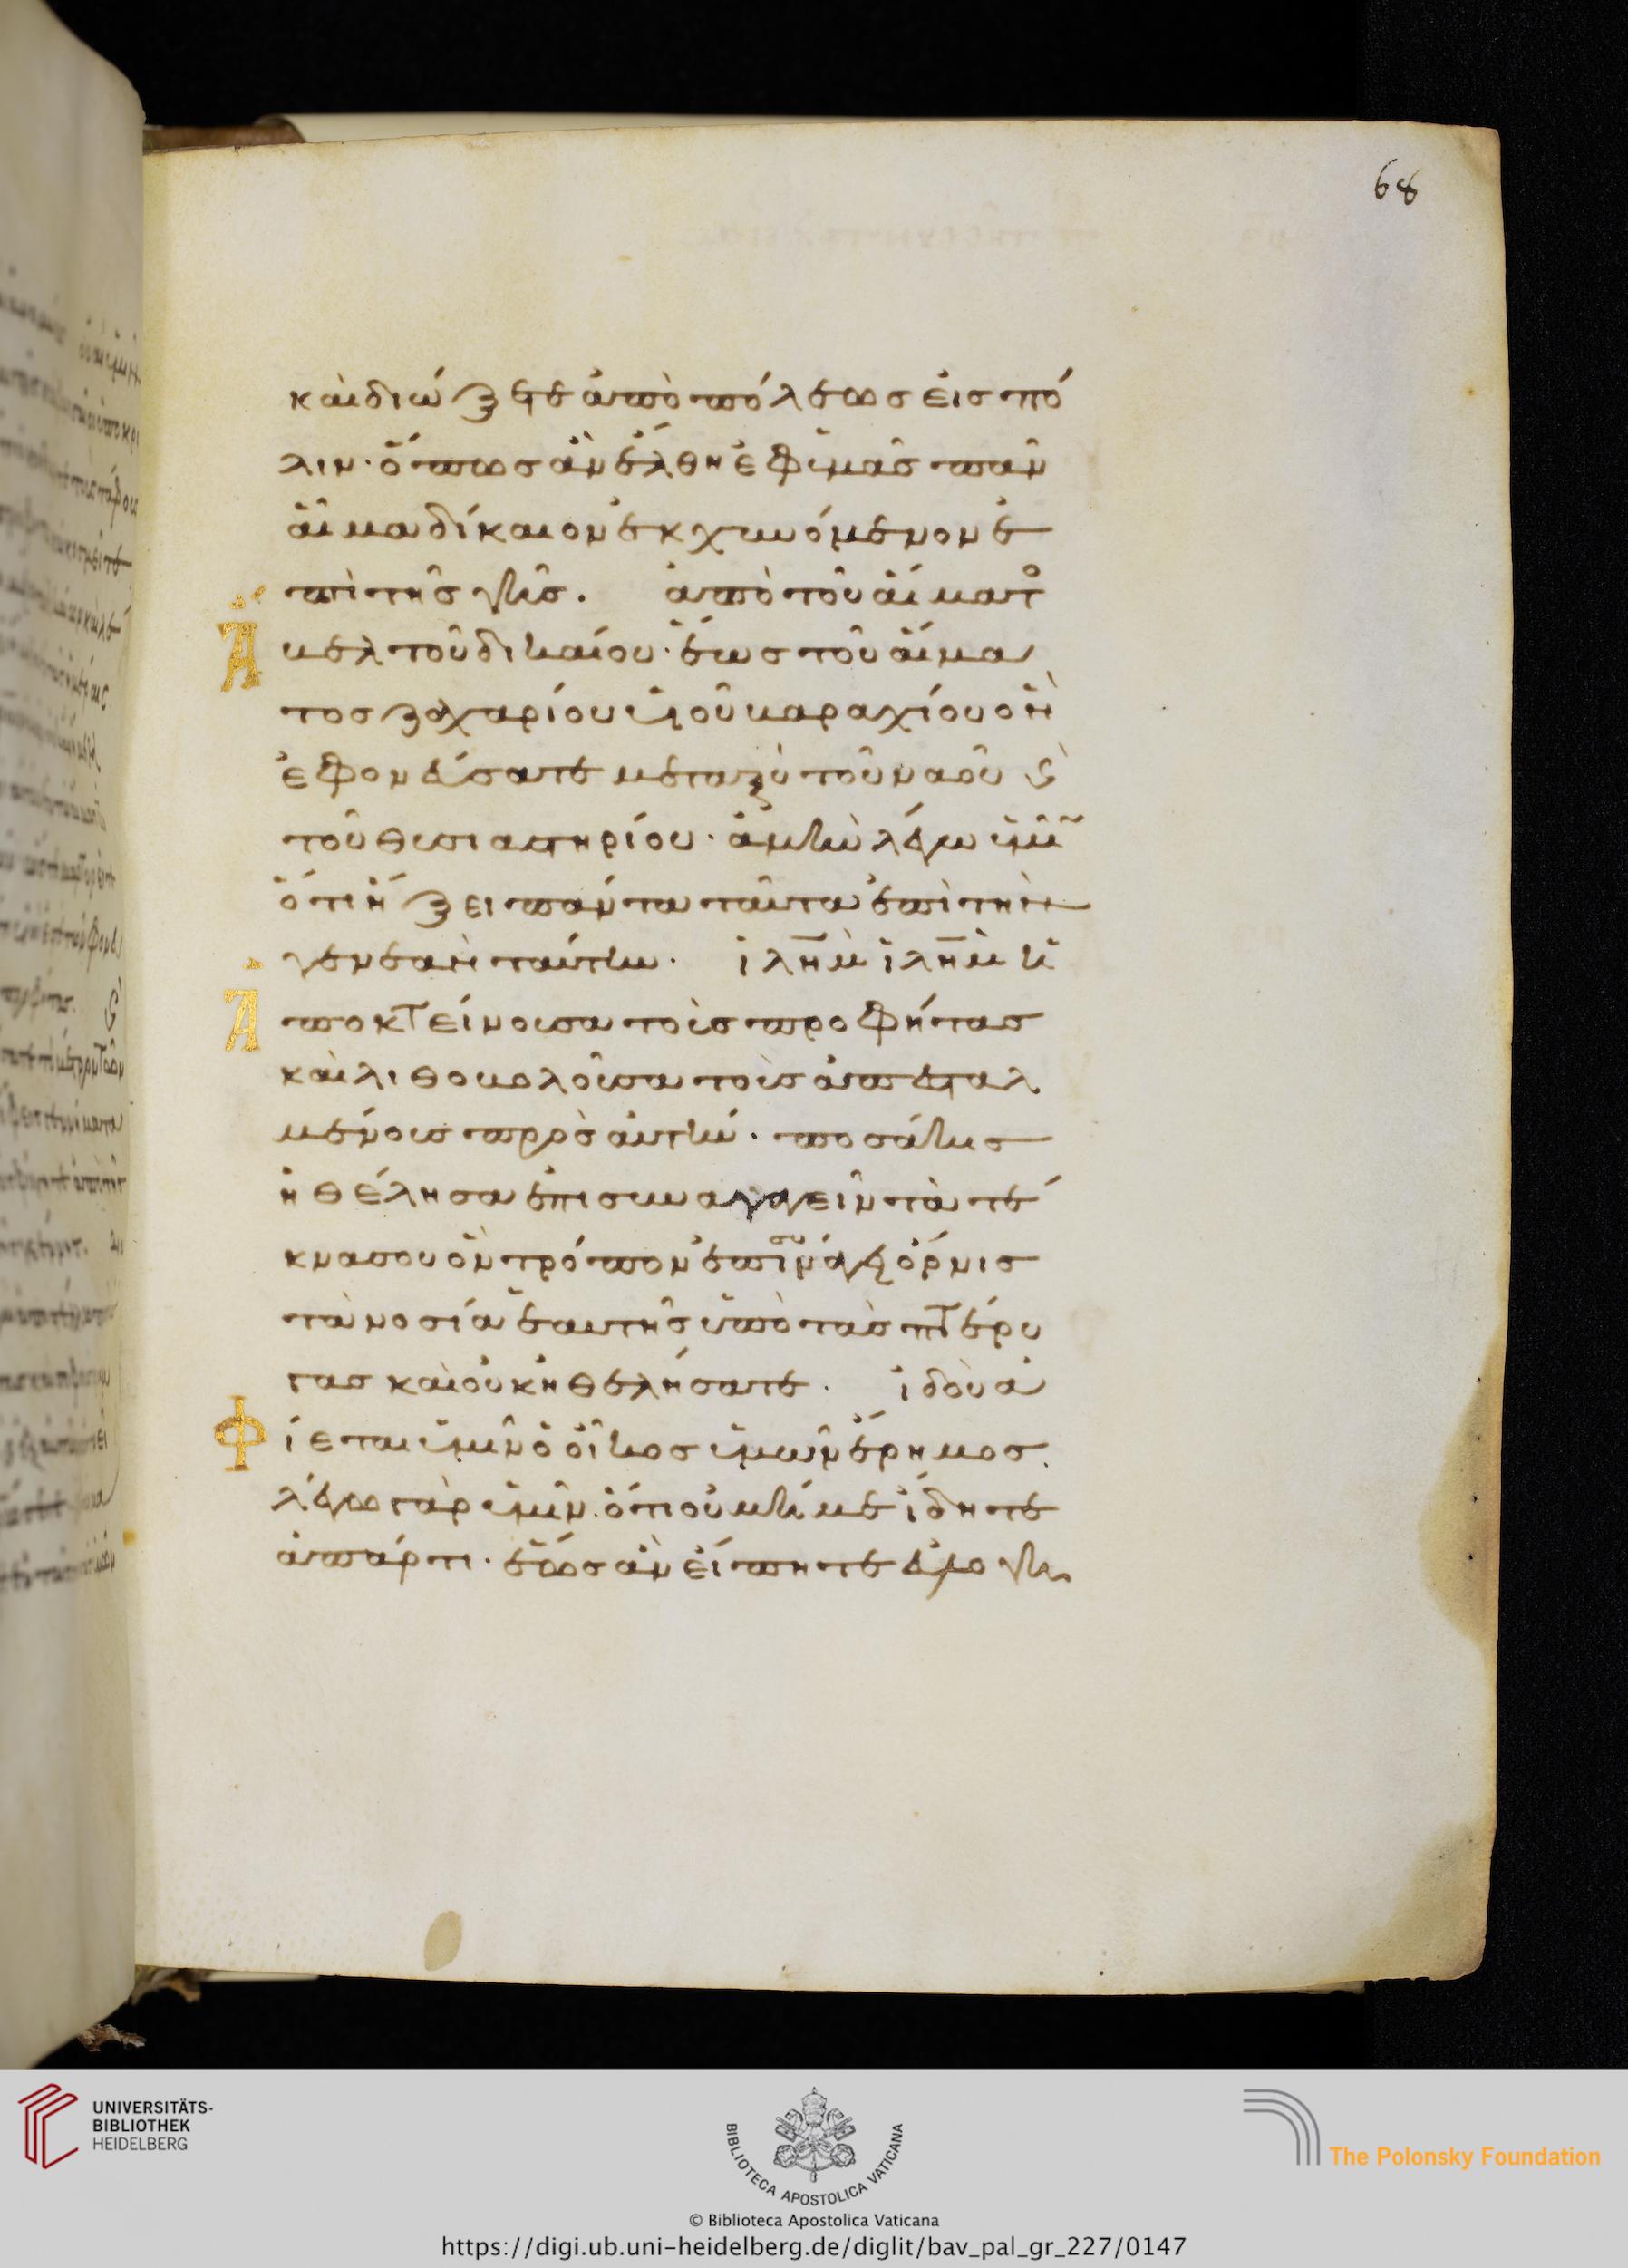 68
καὶ διώξετε ἀπὸ πόλεως εἰς πό
λιν· ὅπως ἂν ἔλθη ἐφ ὑμᾶς πᾶν
αἷμα δίκαιον ἐκχυνόμενον ἐ
πὶ τῆς γῆς. ἀπὸ τοῦ αἵματο
Ἄ βελ τοῦ δικαίου· ἕως τοῦ αἵμα
τος ζαχαρίου υἱοῦ βαραχίου ὃν
ἐφονεύσατε μεταξὺ τοῦ ναοῦ ϗ
τοῦ θυσιαστηρίου· ἀμὴν λέγω ὑμῖ
ὅτι ἥξει πάντα ταῦτα ἐπὶ τὴν
γενεὰν ταύτην. ἰλημ ἰλημ ἡ
Ἀ ποκτείνουσα τοὺς προφήτας
καὶ λιθοβολοῦσα τοὺς ἀπεσταλ
μένους πρὸς αὐτήν. ποσάκις
ἠθέλησα ἐπισυναγαγεῖν τὰ τέ
κνα σου ὃν τρόπον ἐπισυνάγει ὄρνις
τὰ νοσία ἑαυτῆς ὑπὸ τὰς πτέρυ
γας καὶ οὐκ ἠθελήσατε. ἰδοὺ ἀ
Φ ίεται ὑμῖν ὁ οἶκος ὑμῶν ἔρημος.
λέγω γὰρ ὑμῖν. ὅτι οὐ μή με ἴδητε
ἀπάρτι. ἕως ἂν εἴπητε εὐλογη
UNIVERSITÄTS-
BIBLIOTHEK
HEIDELBERG
BIBLIOTECA APOSTOLICA VATICANA
© Biblioteca Apostolica Vaticana
The Polonsky Foundation
https://digi.ub.uni-heidelberg.de/diglit/bav_pal_gr_227/0147